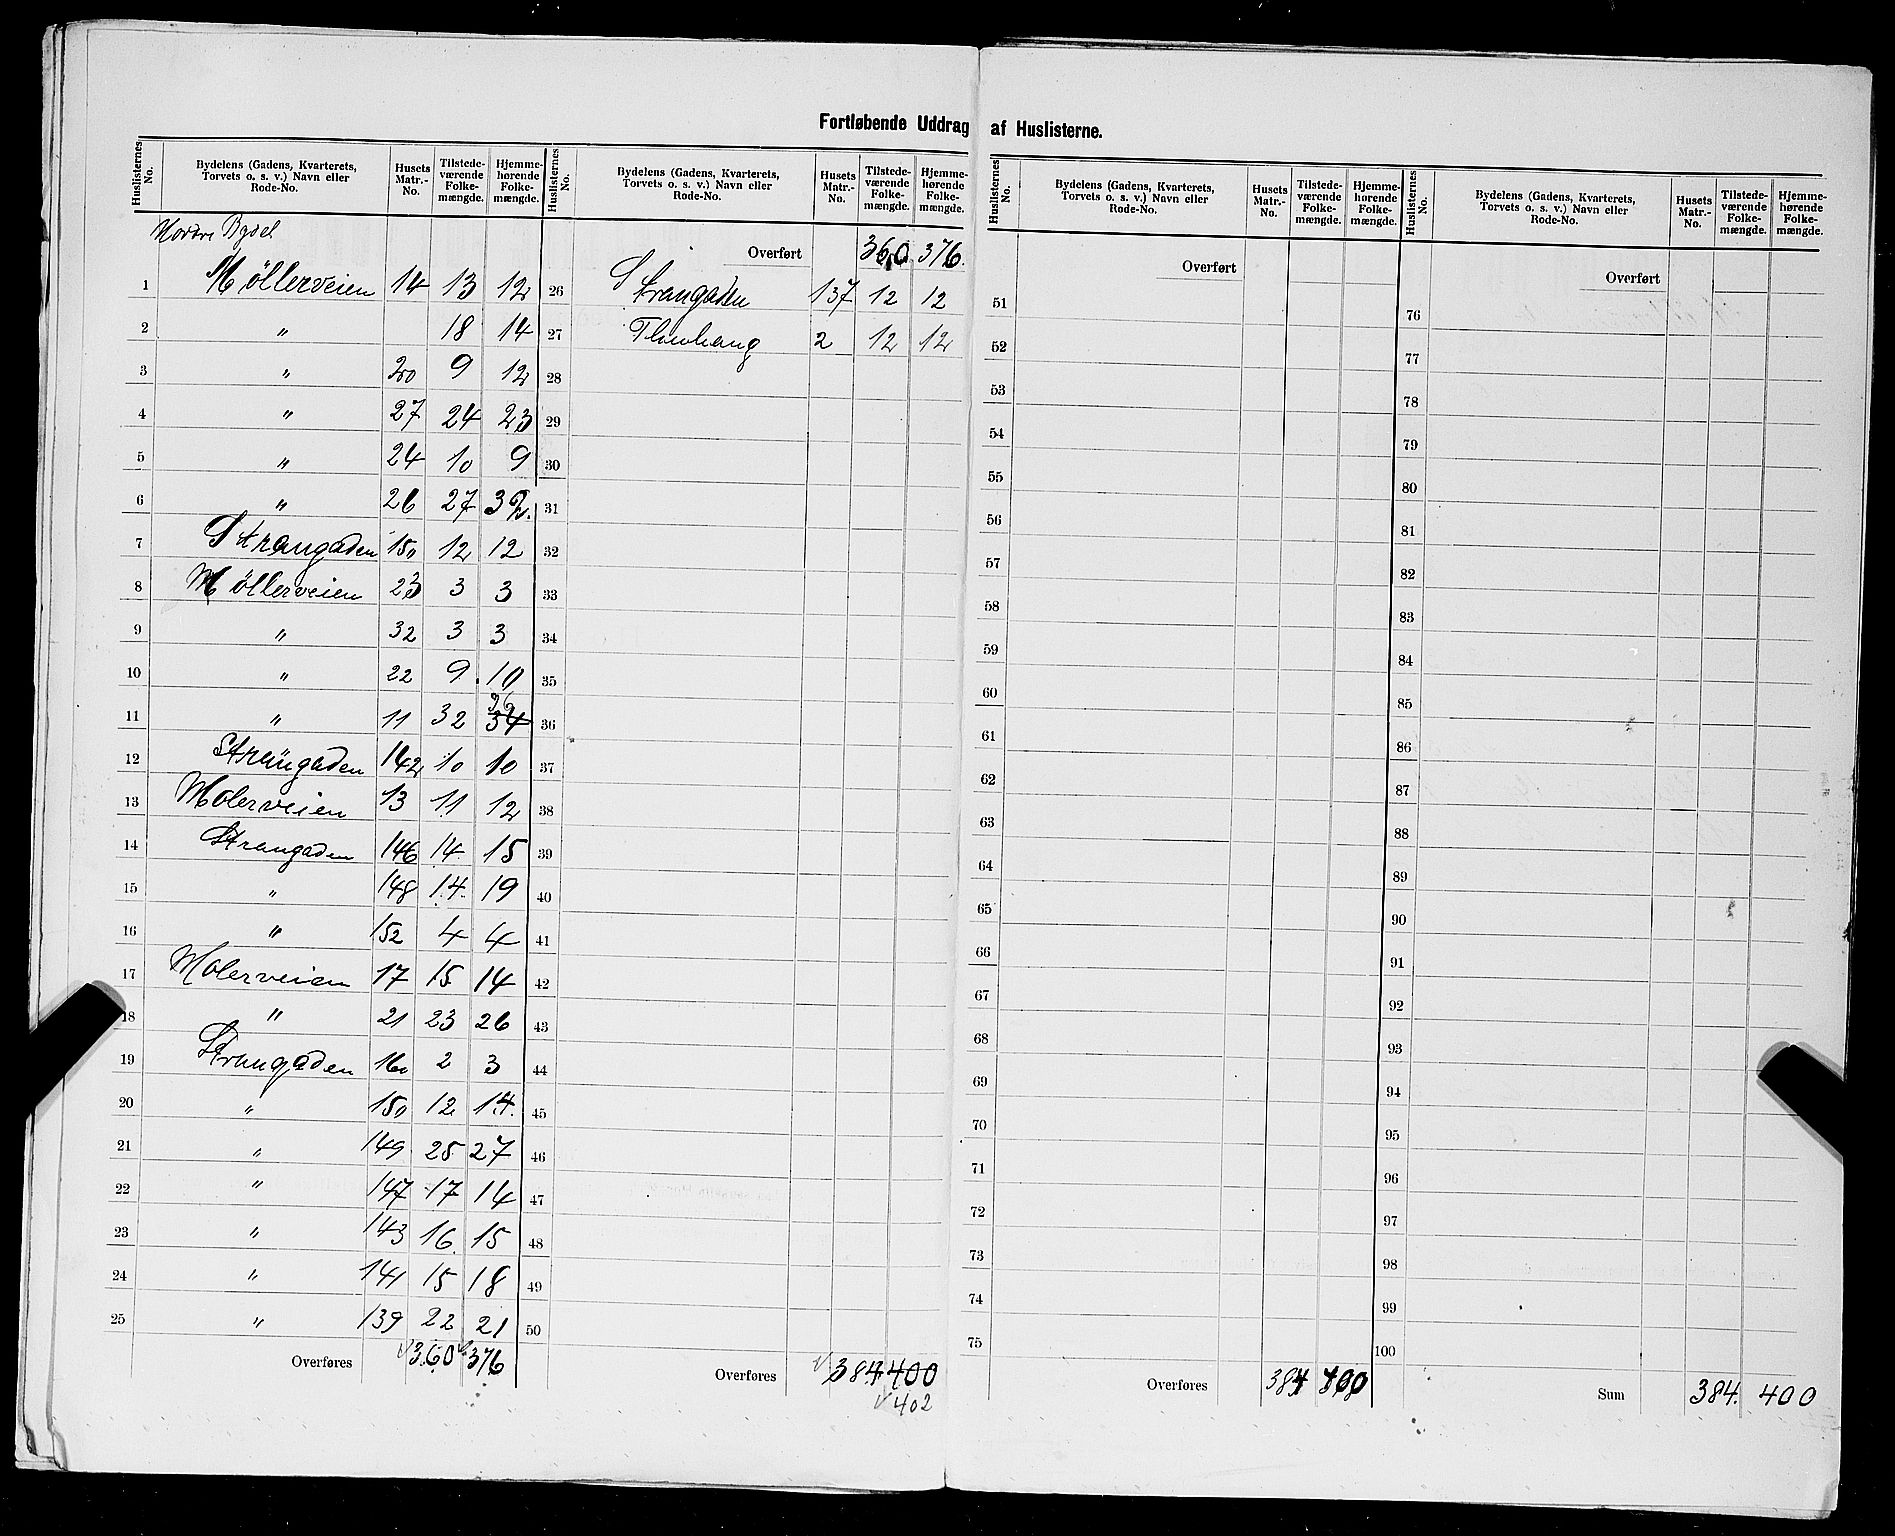 Fortløbende Uddrag af Huslisterne.
Huslisternes No. | Bydelens (Gadens, Kvarterets, Torvets o. s. v.) Navn eller Rode-No. | Husets Matr.-No. | Tilstedeværende Folkemængde. | Hjemmehørende Folkemængde.
Nordre Bydel
1 Möllerveien 14 13 12
2 " 18 14
3 " 20 9 12
4 " 27 24 23
5 " 24 10 9
6 " 26 27 32.
7 Strangaden 150 12 12
8 Möllerveien 23 3 3
9 " 32 3 3
10 " 22 9 10
11 " 11 32 34 36
12 Strangaden 142 10 10
13 Molerveien 13 11 12
14 Strangaden 146 14 15
15 " 148 14 19
16 " 152 4 4
17 Molerveien 17 15 14
18 " 21 23 26
19 Strangaden 160 2 3
20 " 150 12 14.
21 " 149 25 27
22 " 147 17 14
23 " 143 16 15
24 " 141 15 18
25 " 139 22 21
Overføres 360 376
Huslisternes No. | Bydelens (Gadens, Kvarterets, Torvets o. s. v.) Navn eller Rode-No. | Husets Matr.-No. | Tilstedeværende Folkemængde. | Hjemmehørende Folkemængde.
Overført 360 376.
26 Strangaden 137 12 12
27 2 12 12
28
29
30
31
32
33
34
35
36
37
38
39
40
41
42
43
44
45
46
47
48
49
50
Overføres 384 400
402
Huslisternes No. | Bydelens (Gadens, Kvarterets, Torvets o. s. v.) Navn eller Rode-No. | Husets Matr.-No. | Tilstedeværende Folkemængde. | Hjemmehørende Folkemængde.
Overført
51
52
53
54
55
56
57
58
59
60
61
62
63
64
65
66
67
68
69
70
71
72
73
74
75
Overføres 384 400
Huslisternes No. | Bydelens (Gadens, Kvarterets, Torvets o. s. v.) Navn eller Rode-No. | Husets Matr.-No. | Tilstedeværende Folkemængde. | Hjemmehørende Folkemængde.
Overført
76
77
78
79
80
81
82
83
84
85
86
87
88
89
90
91
92
93
94
95
96
97
98
99
100
Sum 384. 400